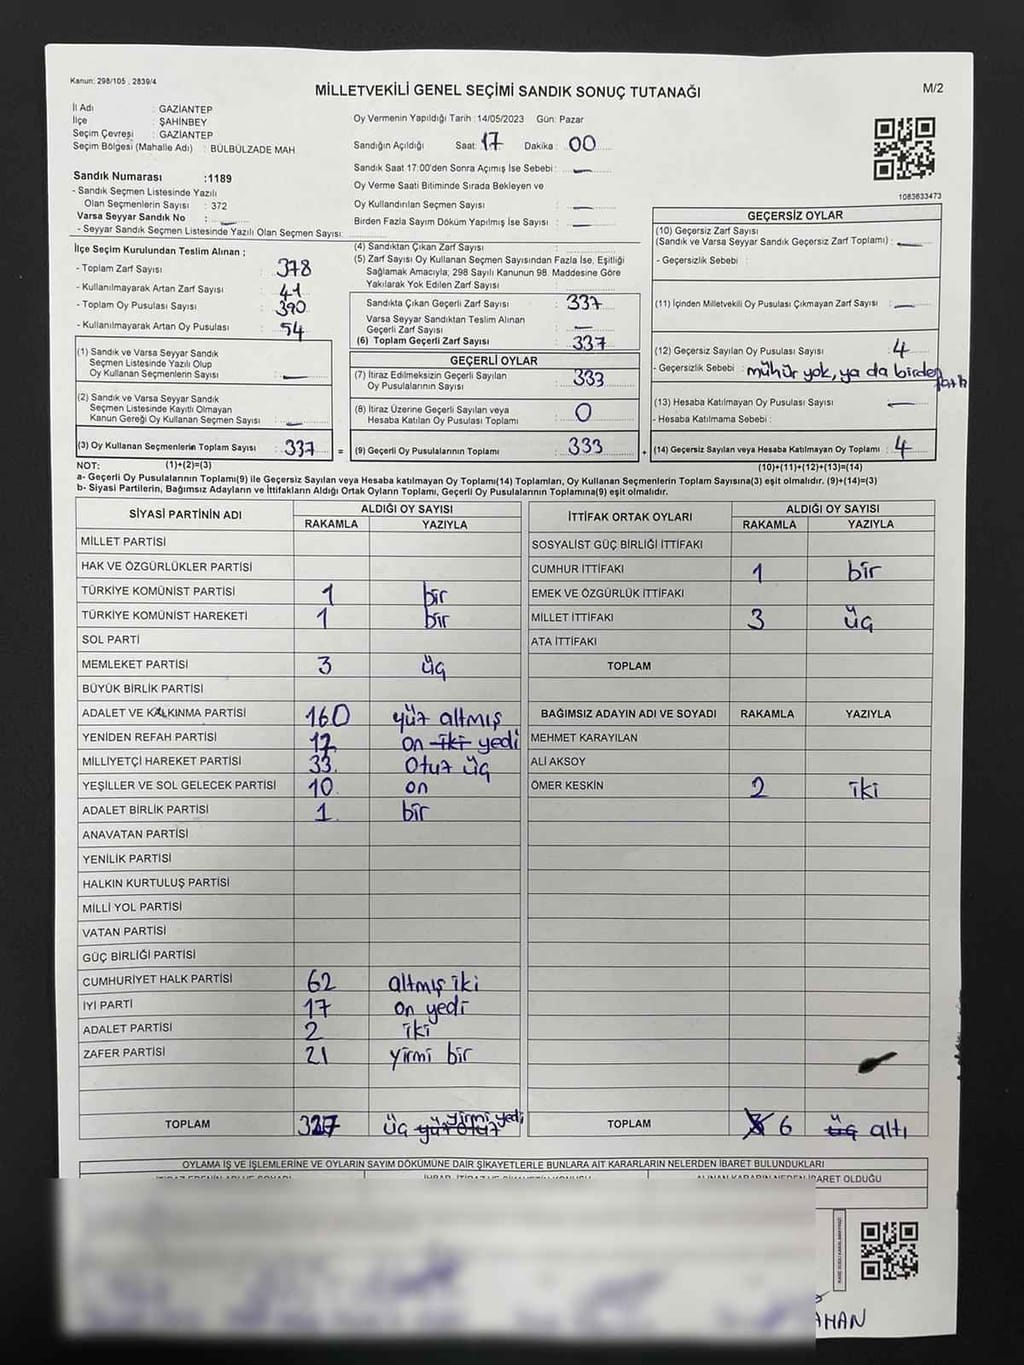 Kanun: 298/105 , 2839/4
MİLLETVEKİLİ GENEL SEÇİMİ SANDIK SONUÇ TUTANAĞI
M/2
İl Adı : GAZİANTEP
İlçe : ŞAHİNBEY
Seçim Çevresi : GAZİANTEP
Seçim Bölgesi (Mahalle Adı) : BÜLBÜLZADE MAH
Sandık Numarası :1189
- Sandık Seçmen Listesinde Yazılı
Olan Seçmenlerin Sayısı : 372
Varsa Seyyar Sandık No :
- Seyyar Sandık Seçmen Listesinde Yazılı Olan Seçmen Sayısı:
Oy Vermenin Yapıldığı Tarih : 14/05/2023 Gün: Pazar
Sandığın Açıldığı Saat: 17 Dakika : 00
Sandık Saat 17:00'den Sonra Açımış İse Sebebi :
Oy Verme Saati Bitiminde Sırada Bekleyen ve
Oy Kullandırılan Seçmen Sayısı :
Birden Fazla Sayım Döküm Yapılmış İse Sayısı :
1083633473
İlçe Seçim Kurulundan Teslim Alınan ;
- Toplam Zarf Sayısı : 378
- Kullanılmayarak Artan Zarf Sayısı : 41
- Toplam Oy Pusulası Sayısı : 390
- Kullanılmayarak Artan Oy Pusulası : 54
(1) Sandık ve Varsa Seyyar Sandık
Seçmen Listesinde Yazılı Olup
Oy Kullanan Seçmenlerin Sayısı :
(2) Sandık ve Varsa Seyyar Sandık
Seçmen Listesinde Kayıtlı Olmayan
Kanun Gereği Oy Kullanan Seçmen Sayısı :
(3) Oy Kullanan Seçmenlerin Toplam Sayısı : 337
(4) Sandıktan Çıkan Zarf Sayısı :
(5) Zarf Sayısı Oy Kullanan Seçmen Sayısından Fazla İse, Eşitliği
Sağlamak Amacıyla, 298 Sayılı Kanunun 98. Maddesine Göre
Yakılarak Yok Edilen Zarf Sayısı :
Sandıkta Çıkan Geçerli Zarf Sayısı : 337
Varsa Seyyar Sandıktan Teslim Alınan
Geçerli Zarf Sayısı :
(6) Toplam Geçerli Zarf Sayısı : 337
GEÇERLİ OYLAR
(7) İtiraz Edilmeksizin Geçerli Sayılan
Oy Pusulalarının Sayısı : 333
(8) İtiraz Üzerine Geçerli Sayılan veya
Hesaba Katılan Oy Pusulası Toplamı : 0
= (9) Geçerli Oy Pusulalarının Toplamı : 333
GEÇERSİZ OYLAR
(10) Geçersiz Zarf Sayısı
(Sandık ve Varsa Seyyar Sandık Geçersiz Zarf Toplamı) :
- Geçersizlik Sebebi :
(11) İçinden Milletvekili Oy Pusulası Çıkmayan Zarf Sayısı :
(12) Geçersiz Sayılan Oy Pusulası Sayısı : 4
- Geçersizlik Sebebi : mühür yok, ya da birden
fazla
(13) Hesaba Katılmayan Oy Pusulası Sayısı :
- Hesaba Katılmama Sebebi :
+ (14) Geçersiz Sayılan veya Hesaba Katılmayan Oy Toplamı : 4
NOT: (1)+(2)=(3) (10)+(11)+(12)+(13)=(14)
a- Geçerli Oy Pusulalarının Toplamı(9) ile Geçersiz Sayılan veya Hesaba katılmayan Oy Toplamı(14) Toplamları, Oy Kullanan Seçmenlerin Toplam Sayısına(3) eşit olmalıdır. (9)+(14)=(3)
b- Siyasi Partilerin, Bağımsız Adayların ve İttifakların Aldığı Ortak Oyların Toplamı, Geçerli Oy Pusulalarının Toplamına(9) eşit olmalıdır.
SİYASİ PARTİNİN ADI ALDIĞI OY SAYISI
RAKAMLA YAZIYLA
MİLLET PARTİSİ
HAK VE ÖZGÜRLÜKLER PARTİSİ
TÜRKİYE KOMÜNİST PARTİSİ 1 bir
TÜRKİYE KOMÜNİST HAREKETİ 1 bir
SOL PARTİ
MEMLEKET PARTİSİ 3 üç
BÜYÜK BİRLİK PARTİSİ
ADALET VE KALKINMA PARTİSİ 160 yüz altmış
YENİDEN REFAH PARTİSİ 17 on iki yedi
MİLLİYETÇİ HAREKET PARTİSİ 33 otuz üç
YEŞİLLER VE SOL GELECEK PARTİSİ 10 on
ADALET BİRLİK PARTİSİ 1 bir
ANAVATAN PARTİSİ
YENİLİK PARTİSİ
HALKIN KURTULUŞ PARTİSİ
MİLLİ YOL PARTİSİ
VATAN PARTİSİ
GÜÇ BİRLİĞİ PARTİSİ
CUMHURİYET HALK PARTİSİ 62 altmış iki
İYİ PARTİ 17 on yedi
ADALET PARTİSİ 2 iki
ZAFER PARTİSİ 21 yirmi bir
TOPLAM 327 üç yüz yirmi yedi
İTTİFAK ORTAK OYLARI ALDIĞI OY SAYISI
RAKAMLA YAZIYLA
SOSYALİST GÜÇ BİRLİĞİ İTTİFAKI
CUMHUR İTTİFAKI 1 bir
EMEK VE ÖZGÜRLÜK İTTİFAKI
MİLLET İTTİFAKI 3 üç
ATA İTTİFAKI
TOPLAM
BAĞIMSIZ ADAYIN ADI VE SOYADI RAKAMLA YAZIYLA
MEHMET KARAYILAN
ALİ AKSOY
ÖMER KESKİN 2 iki
TOPLAM 6 üç altı
OYLAMA İŞ VE İŞLEMLERİNE VE OYLARIN SAYIM DÖKÜMÜNE DAİR ŞİKAYETLERLE BUNLARA AİT KARARLARIN NELERDEN İBARET BULUNDUKLARI